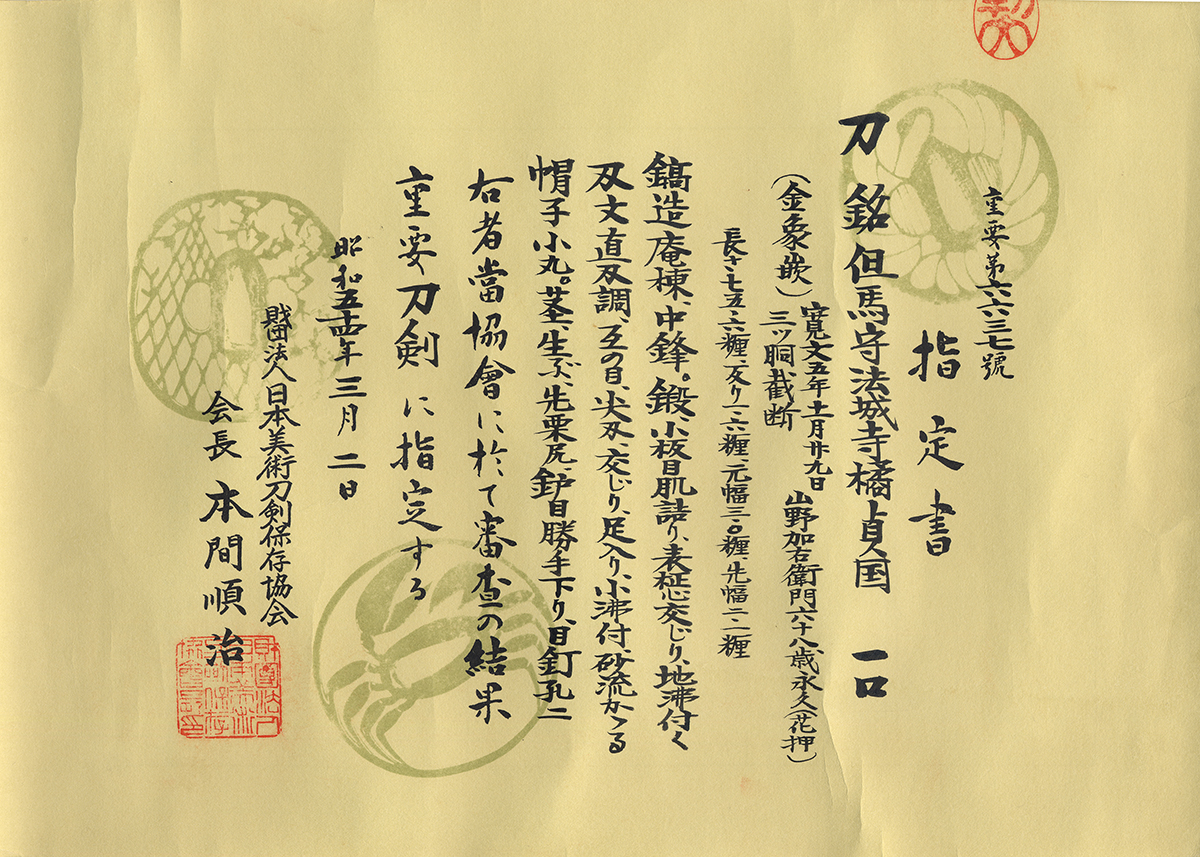 重要第六六三七號
指定書
刀 銘 但馬守法城寺橘貞国 一口
(金象嵌)
寛文五年十二月廿九日 山野加右衛門六十八歳永久(花押)
三ツ胴截断
長さ、七五・六糎、反り一・六糎、元幅三・〇糎、先幅二・二糎
鎬造、庵棟、中鋒。鍛、小板目肌詰り、表柾交じり、地沸付く
刃文直刃調、互の目、尖刃、交じり、足入り、小沸付、砂流かゝる
帽子小丸。茎、生ぶ、先栗尻、鈩目勝手下り、目釘孔二
右者當協會に於て審査の結果
重要刀剣に指定する
昭和五十四年三月二日
財団法人日本美術刀剣保存協会
会長 本間順治